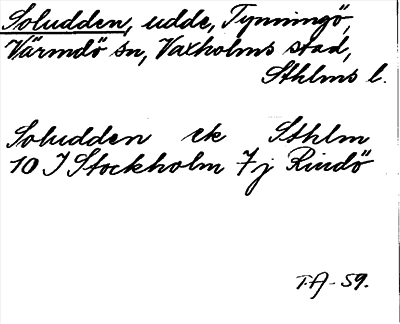 Soludden, udde, Tynningö,
Värmdö sn, Vaxholms stad,
Sthlms l.
Soludden ek Sthlm
10 I Stockholm 7j Rindö
T.A - 59.